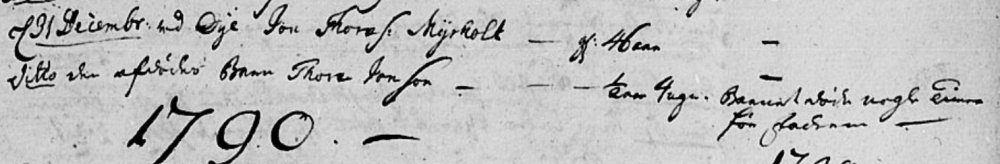 31 Decembr. ved Dye Jon Thores. Myrholt — gl: 48 aar —
Ditto den afdødes Barn Thore Jonson — — — 4 ugr. Barnet døde nogle Timer
før Faderen —
1790. —